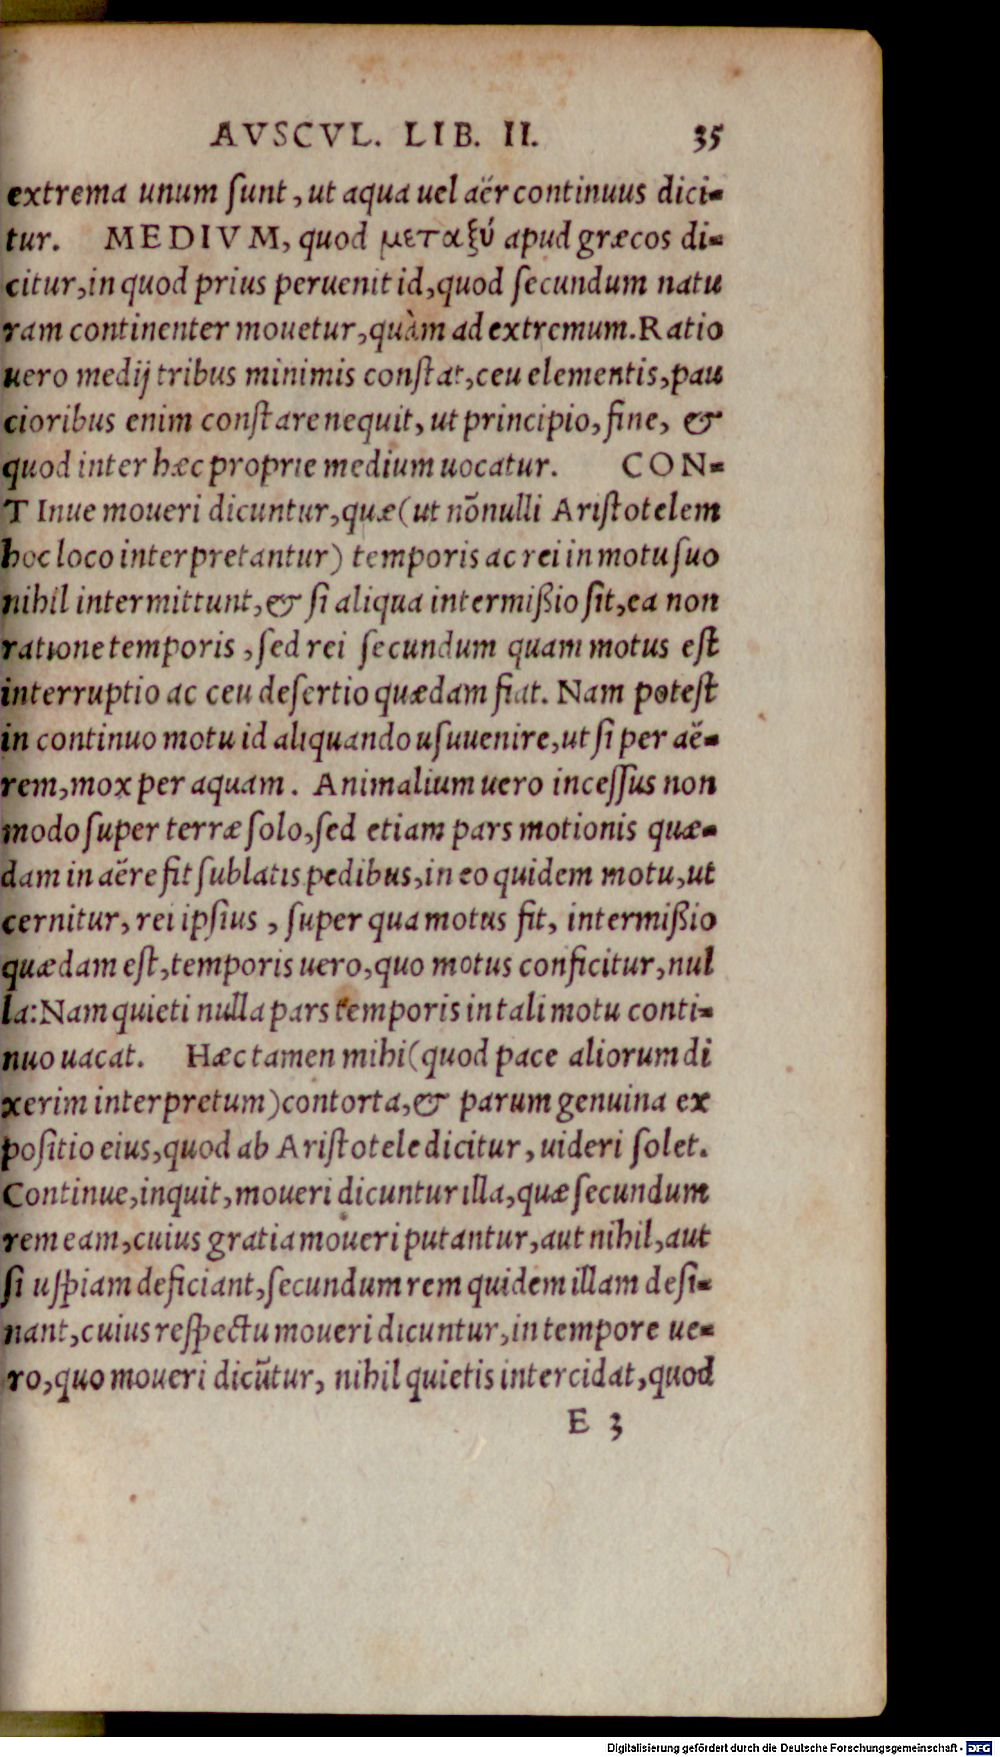 AVSCVL. LIB. II. 35
extrema unum ſunt, ut aqua uel aër continuus dici-
tur. MEDIVM, quod μεταξύ apud græcos di-
citur, in quod prius peruenit id, quod ſecundum natu
ram continenter mouetur, quàm ad extremum. Ratio
uero medij tribus minimis conſtat, ceu elementis, pau
cioribus enim conſtare nequit, ut principio, fine, &
quod inter hæc proprie medium uocatur. CON-
TInue moueri dicuntur, quæ (ut nõnulli Ariſtotelem
hoc loco interpretantur) temporis ac rei in motu ſuo
nihil intermittunt, & ſi aliqua intermißio ſit, ea non
ratione temporis, ſed rei ſecundum quam motus eſt
interruptio ac ceu deſertio quædam fiat. Nam poteſt
in continuo motu id aliquando uſuuenire, ut ſi per aë-
rem, mox per aquam. Animalium uero inceſſus non
modo ſuper terræ ſolo, ſed etiam pars motionis quæ-
dam in aëre fit ſublatis pedibus, in eo quidem motu, ut
cernitur, rei ipſius, ſuper qua motus fit, intermißio
quædam eſt, temporis uero, quo motus conficitur, nul
la: Nam quieti nulla pars temporis in tali motu conti-
nuo uacat. Hæc tamen mihi (quod pace aliorum di
xerim interpretum) contorta, & parum genuina ex
poſitio eius, quod ab Ariſtotele dicitur, uideri ſolet.
Continue, inquit, moueri dicuntur illa, quæ ſecundum
rem eam, cuius gratia moueri putantur, aut nihil, aut
ſi uſpiam deficiant, ſecundum rem quidem illam deſi-
nant, cuius reſpectu moueri dicuntur, in tempore ue-
ro, quo moueri dicũtur, nihil quietis intercidat, quod
E 3
Digitalisierung gefördert durch die Deutsche Forschungsgemeinschaft - DFG